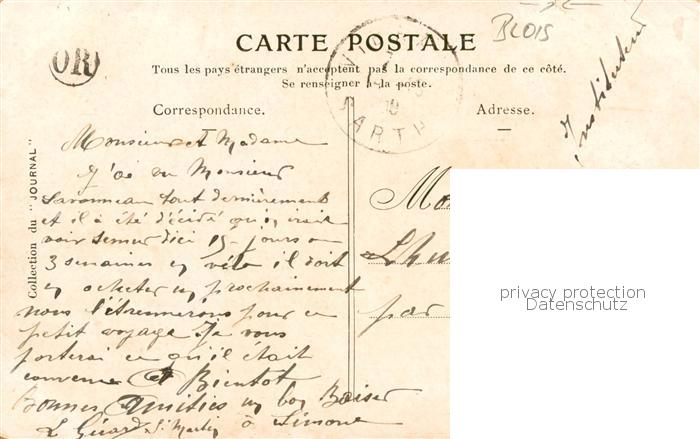 BLOIS
CARTE POSTALE
OR
Tous les pays étrangers n'acceptent pas la correspondance de ce côté.
Se renseigner à la poste.
SARTHE
Correspondance.
Adresse.
Instituteur
Collection du "JOURNAL"
Monsieur et Madame
J'ai vu Monsieur
Savonneau tout dernièrement
et il a été décidé qu'on irait
voir Semur dici 15 jours ou
3 semaines en vélo il doit
en acheter un prochainement
nous l'étrennerons pour ce
petit voyage Je vous
porterai ce qu'il était
convenu et Bientot
Bonnes Amitiés un bon Baiser
à Simone
L Girard St Martin
Lhu
par
privacy protection
Datenschutz